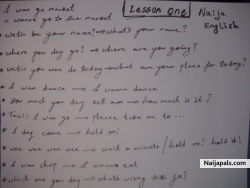 I wan go market
→ wanna go to the market
Lesson One
Naija English
wetin be your name? → what's your name?
where you dey go? → where are you going?
wetin you wan do today → what are your plans for today?
I wan dance → I wanna dance
How much you dey sell am → how much is it?
Taxi! I wan go → please take me to ...
I dey come → hold on!
wee wee wee → wait a minute / hold on! hold it!
I wan chop → I wanna eat
which one you dey → what's wrong with ya?
Naijapals.com